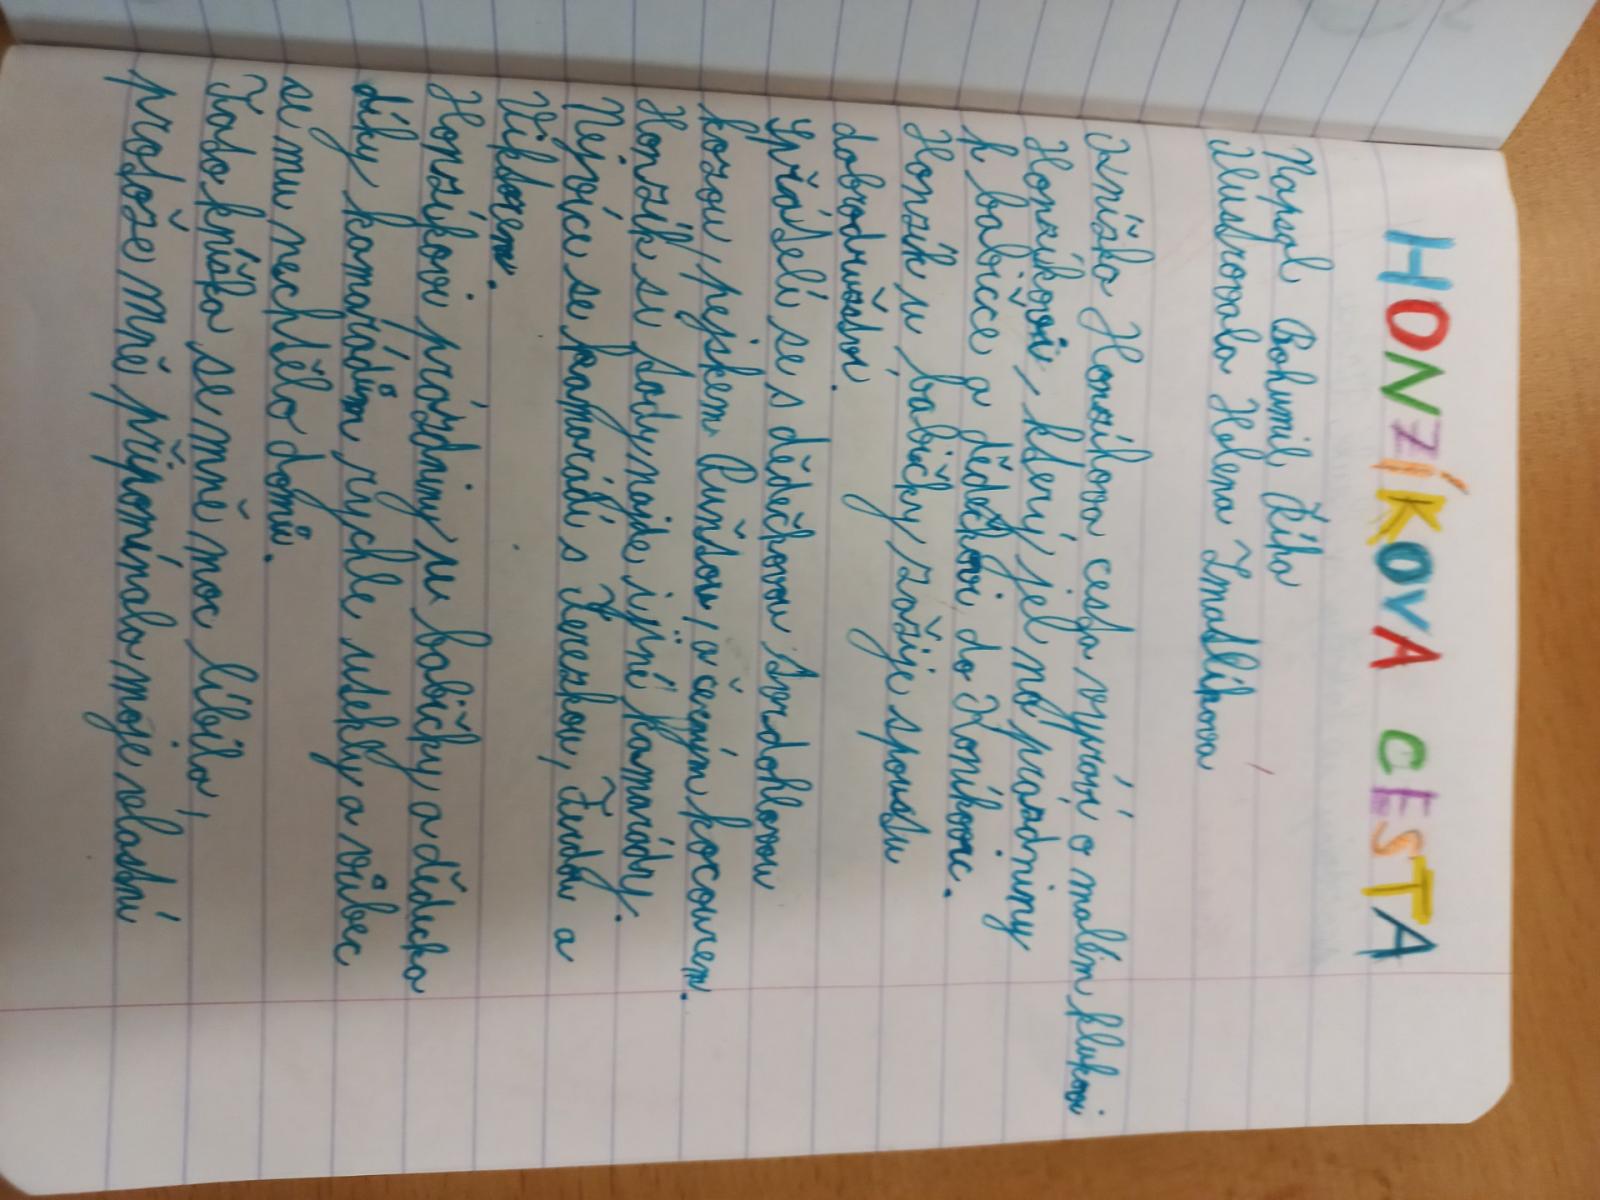 HONZÍKOVA CESTA
Napsal Bohumil Říha
Ilustrovala Helena Zmatlíková
Knížka Honzíkova cesta vypráví o malém klukovi
Honzíkovi, který jel na prázdniny
k babičce a dědečkovi do Koníkovic.
Honzík u babičky zažije spoustu
dobrodružství.
Spřátelí se s dědečkovou tvrdohlavou
kozou, pejskem Punťou, a černým kocourem.
Honzík si tady najde i jiné kamarády.
Nejvíce se kamarádí s Terezkou, Fandou a
Viktorem.
Honzíkovi prázdniny u babičky a dědečka
díky kamarádům rychle utekly a vůbec
se mu nechtělo domů.
Tato knížka se mně moc líbila,
protože mně připomínala moje vlastní